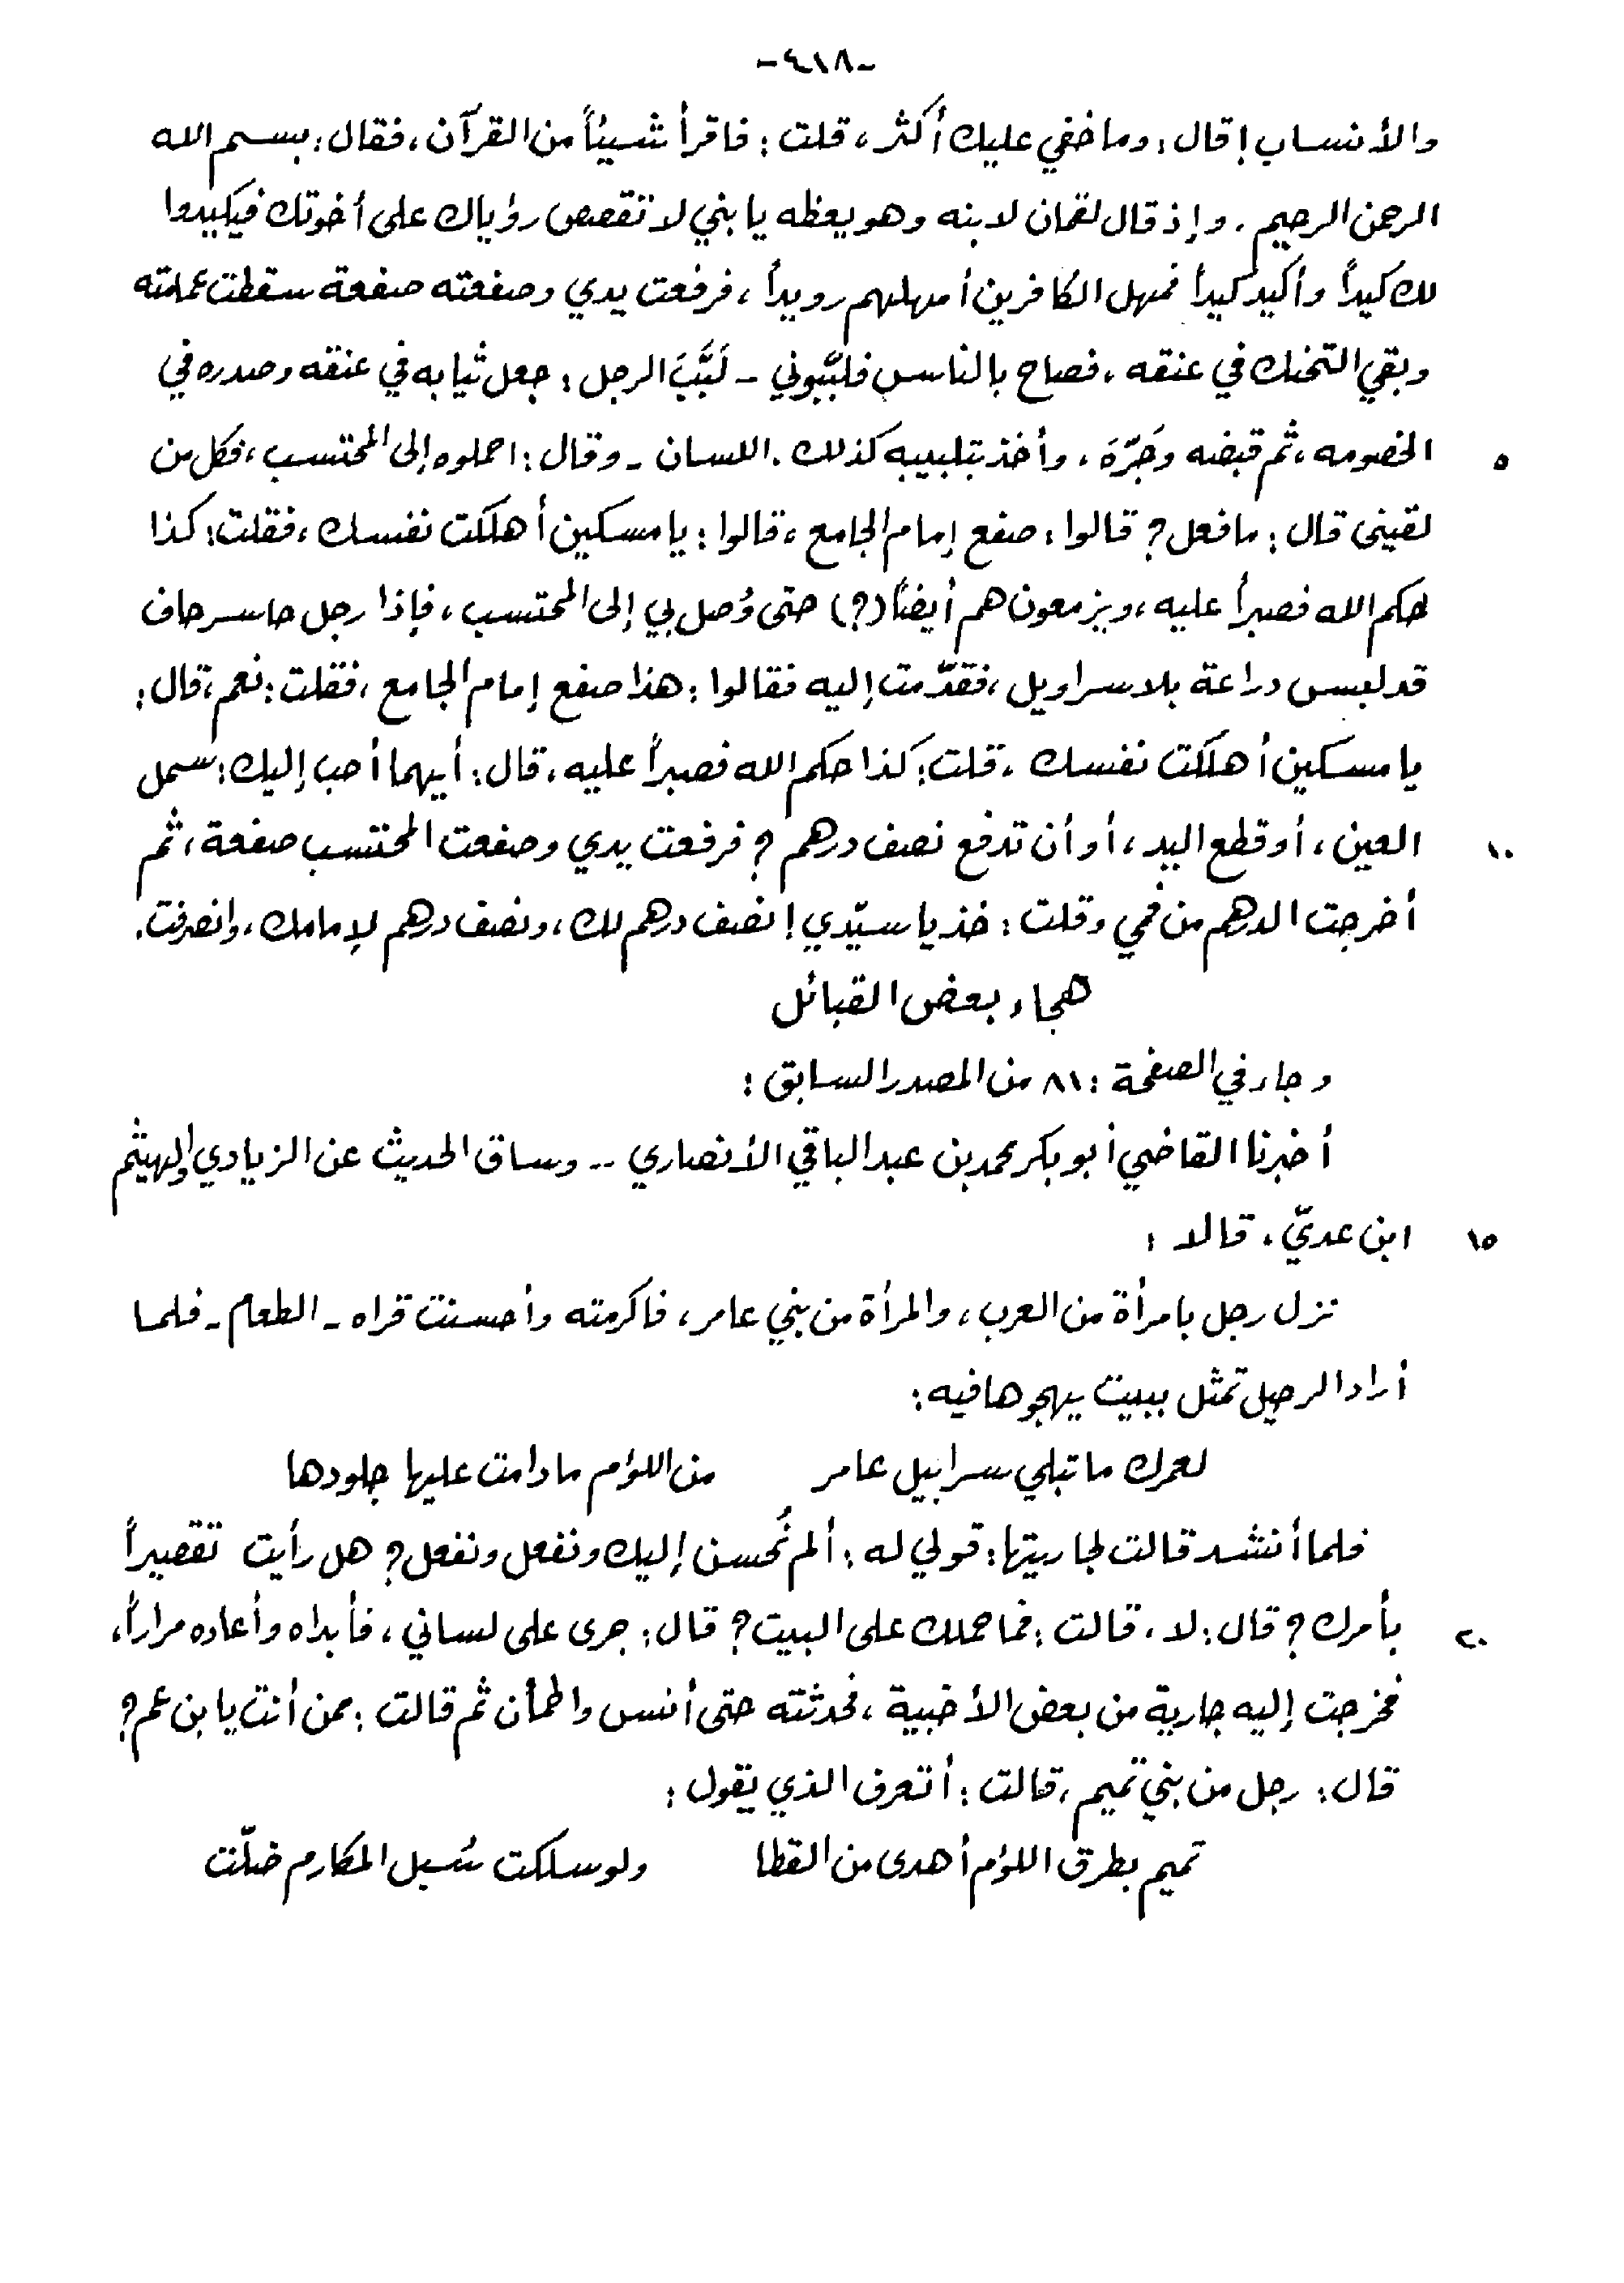 -٤١٨-
والأنساب! قال: وما خفي عليك أكثر، قلت: فاقرأ شيئاً من القرآن، فقال: بسم الله
الرحمن الرحيم. وإذ قال لقمان لابنه وهو يعظه يا بني لا تقصص رؤياك على أخوتك فيكيدوا
لك كيداً وأكيد كيداً فمهل الكافرين أمهلهم رويداً، فرفعت يدي وصفعته صفعة سقطت عمامته
وبقي التحنك في عنقه، فصاح بالناس فلبّبوني - لَبَّبَ الرجل: جعل ثيابه في عنقه وصدره في
٥ الخصومه، ثم قبضه وجَرّهَ، وأخذ بتلبيبه كذلك. اللسان - وقال: احملوه إلى المحتسب، فكل من
لقيني قال: ما فعل؟ قالوا: صفع إمام الجامع، قالوا: يا مسكين أهلكت نفسك، فقلت: كذا
حكم الله فصبراً عليه، ويزمعون هم أيضاً (؟) حتى وُصل بي إلى المحتسب، فإذا رجل حاسر حاف
قد لبس دراعة بلا سراويل، فقدّمت إليه فقالوا: هذا صفع إمام الجامع، فقلت: نعم، قال:
يا مسكين أهلكت نفسك، قلت: كذا حكم الله فصبراً عليه، قال: أيهما أحب إليك: سمل
١٠ العين، أو قطع اليد، أو أن تدفع نصف درهم؟ فرفعت يدي وصفعت المحتسب صفعة، ثم
أخرجت الدرهم من فمي وقلت: خذ يا سيّدي! نصف درهم لك، ونصف درهم لإمامك، وانصرفت.
هجاء بعض القبائل
وجاء في الصفحة: ٨١ من المصدر السابق:
أخبرنا القاضي أبو بكر محمد بن عبد الباقي الأنصاري .. وساق الحديث عن الزيادي أو الهيثم
١٥ ابن عديّ، قالا:
نزل رجل بامرأة من العرب، والمرأة من بني عامر، فاكرمته وأحسنت قراه - الطعام - فلما
أراد الرحيل تمثل ببيت يهجوها فيه:
لعمرك ما تبلي سرابيل عامر من اللؤم ما دامت عليها جلودها
فلما أنشد قالت لجاريتها: قولي له: ألم نُحسن إليك ونفعل ونفعل؟ هل رأيت تقصيراً
٢٠ بأمرك؟ قال: لا، قالت: فما حملك على البيت؟ قال: جرى على لساني، فأبداه وأعاده مراراً،
فخرجت إليه جارية من بعض الأخبية، فحدثته حتى أنس واطمأن ثم قالت: ممن أنت يا بن عم؟
قال: رجل من بني تميم، قالت: أتعرف الذي يقول:
تميم بطرق اللؤم أهدى من القطا ولو سلكت سُبل المكارم ضلّت